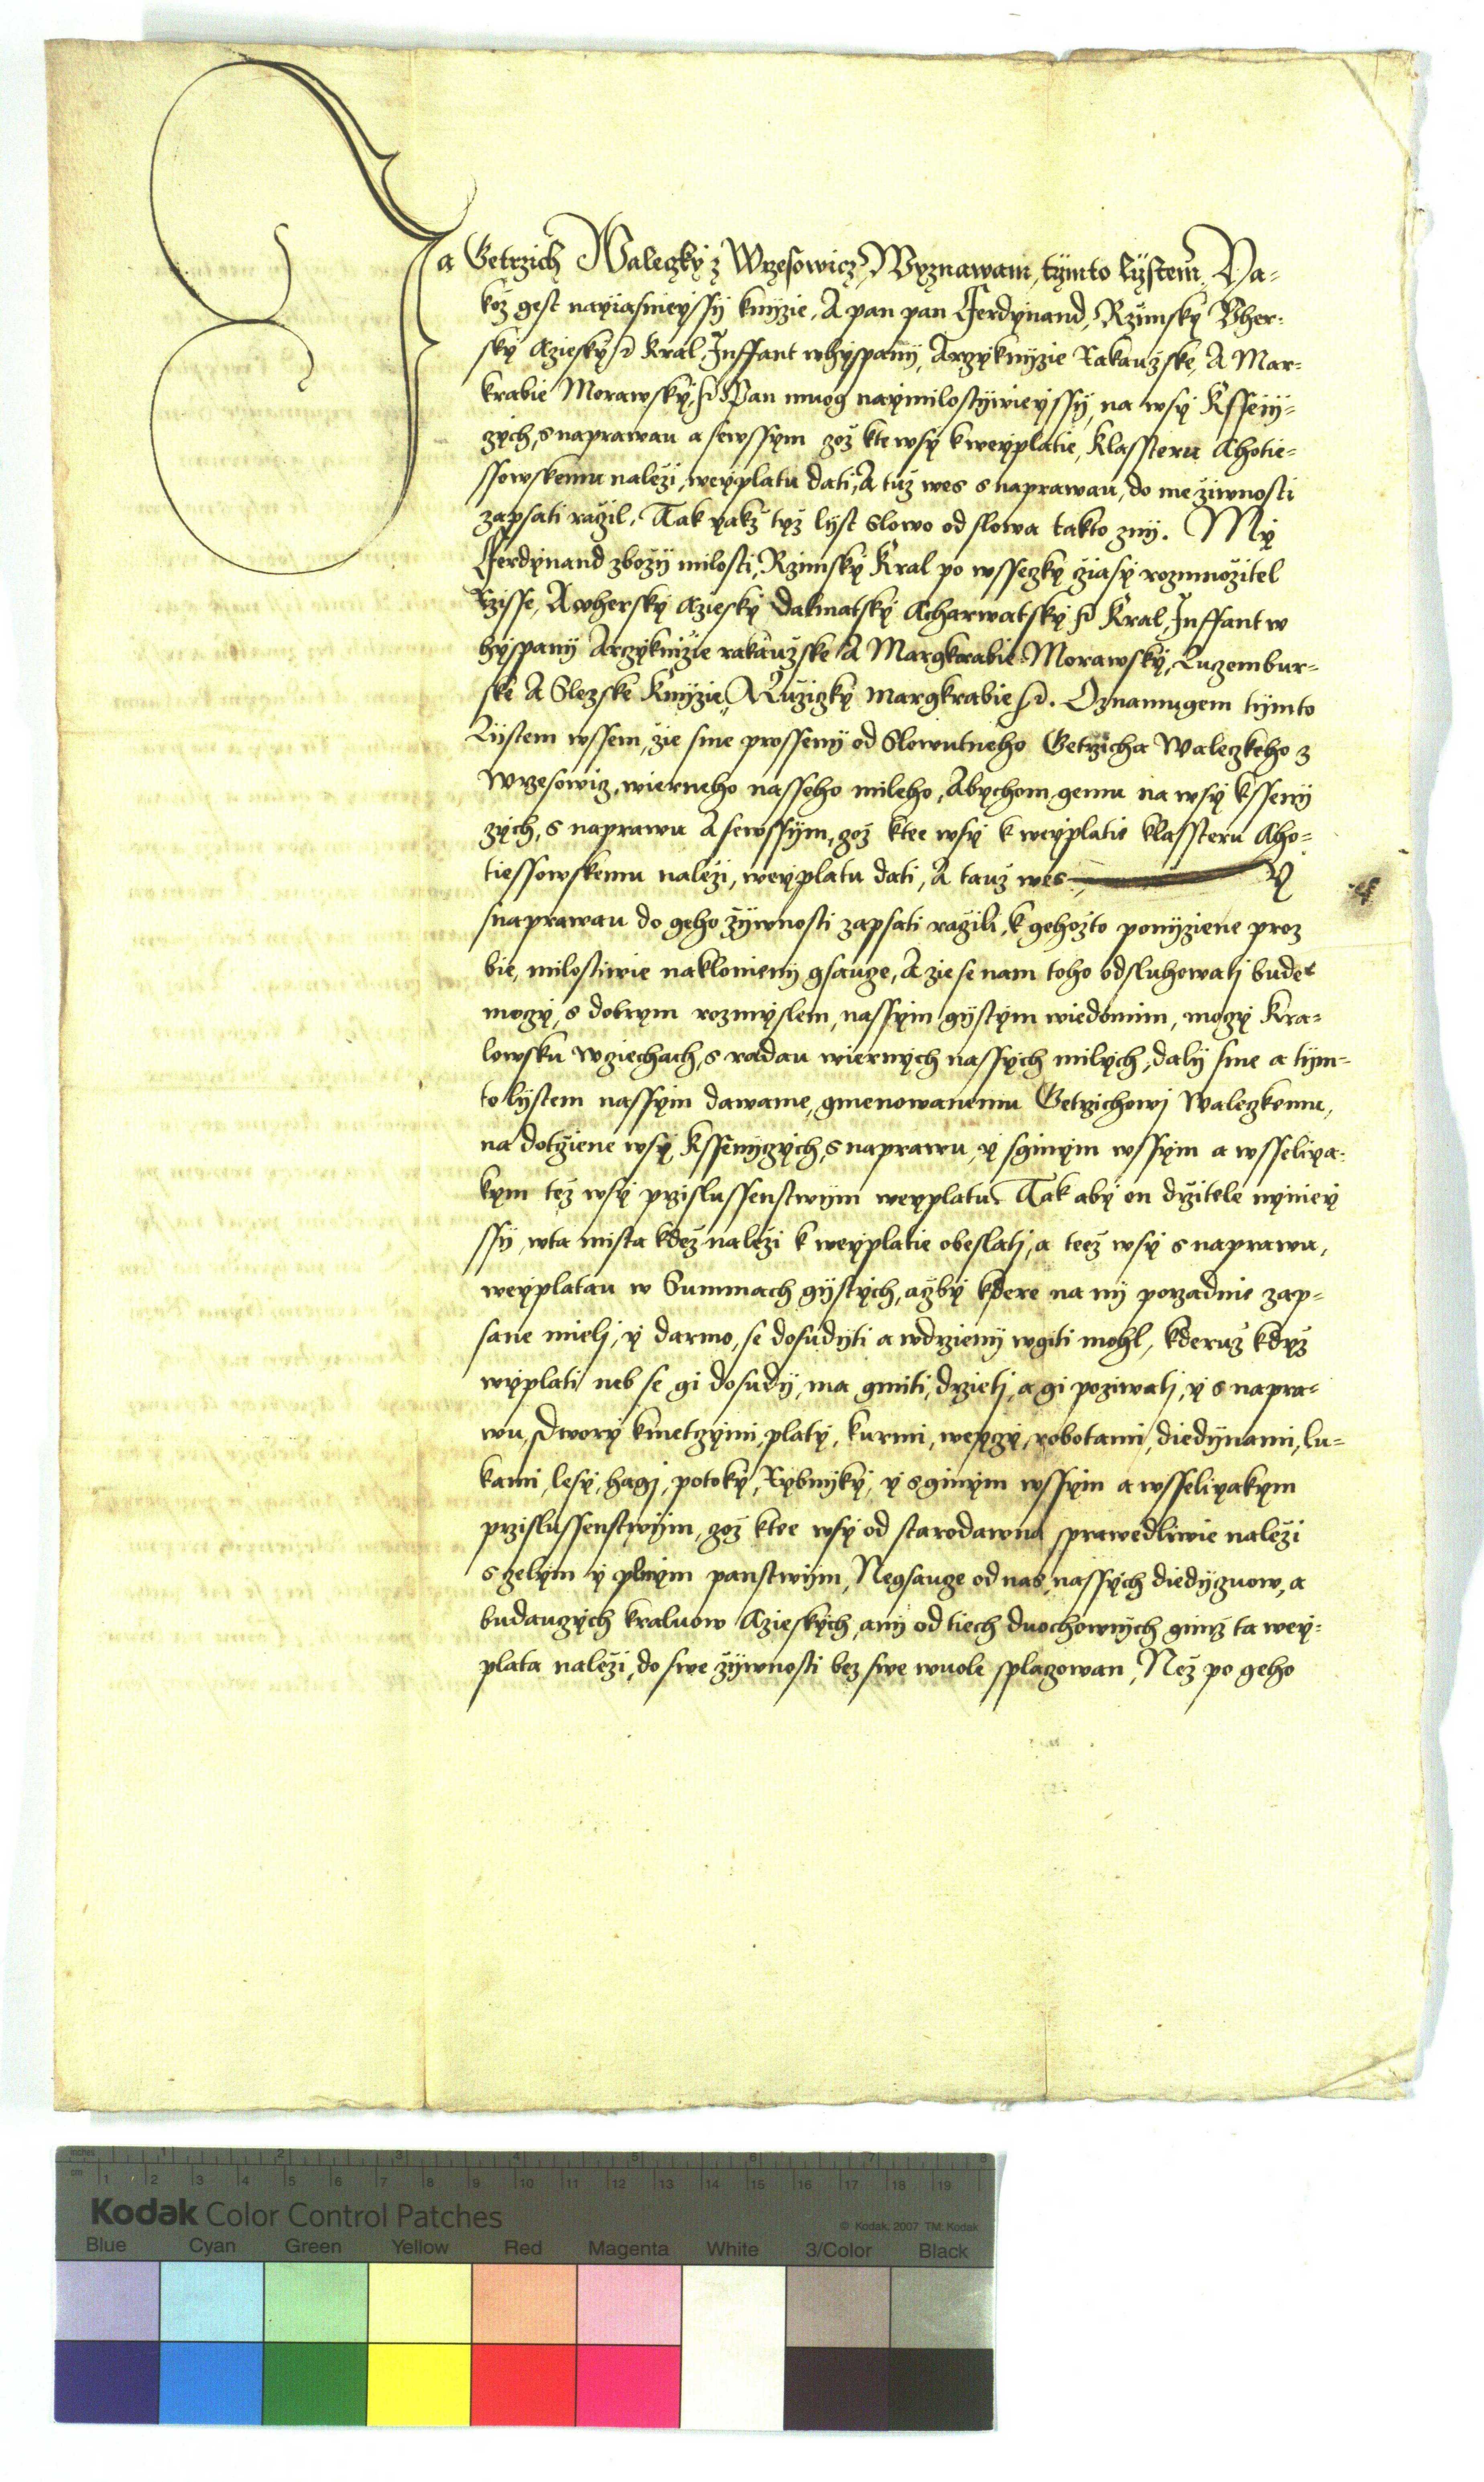 Ja Getrzich Waleczky z Wrzesowicz ꝛc Wyznawam, tymto lystem. Ya=
koz gest nayiasnieyssy knyzie, A pan pan Ferdynand, Rzimsky Vher=
sky Czieský ꝛc Kral, Inffant whyspany, Arczyknyzie Rakauzske, A Mar=
krabie Morawsky, ꝛc Pan muog naymilostywieyssy, na wsy Ksseny=
zych, s naprawau a sewssym zoz ktewsy k weyplatie, Klassteru Chotie=
ssowskemu nalezi, weyplatu dati, A tuz wes s naprawau, do me ziwnosti
zapsati raczil, Tak yakz tyz lyst slowo od slowa takto zny. My
Ferdynand zbozy milosti, Rzimsky Kral po wssezky cziasy rozmnozitel
Rzisse, A vhersky Cziesky Dalmatsky Acharwatsky ꝛc Kral, Inffant w
hyspany Arczyknizie rakauzske A Margkrabie Morawsky, Luzembur=
ske A Slezske Knyzie, A Luziczky margkrabie ꝛc. Oznamugem tymto
Lystem wssem, zie sme prosseny od Slowutneho Getrzicha Waleczkeho z
Wrzesowicz, wierneho nasseho mileho, Abychom gemu na wsy Ksseny
zych, s naprawu A sewssym, zoz ktee wsy k weyplatie klassteru Cho=
tiessowskemu nalezi, weyplatu dati, A tauz wes y
snaprawau do geho zywnosti zapsati raczili, k gehozto ponyziene proz
bie, milostiwie naklonieny gsauze, A zie se nam toho odsluhowati bude
moczy, s dobrym rozmyslem, nassym gystym wiedomim, moczy Kra=
lowsku wcziechach, s radau wiernych nassych milych, daly sme a tym=
to lystem nassym dawame, gmenowanemu Getrzichowi Waleczkemu,
na dotcziene wsy Kssenyzych, s naprawu, y sginym wssym a wsseliya=
kym tez wsy przislussenstwym weyplatu Tak aby on drzitele nyniey
ssy, wta mista kdez nalezi k weyplatie obeslati, a teez wsy s naprawu,
weyplatau w Summach gystych, aczby kdere na ny porzadnie zap=
sane mieli, y darmo, se dosudyti a wdrzieny wgiti mohl, kderuz kdyz
wyplati neb se gi dosudy, ma gmiti, drzieti, a gi poziwati, y s napra=
wu, sdwory kmetczymi, platy, kurmi, weyczy, robotami, diedynami, lu=
kami, lesy, hagi, potoky, Rybnyky, y sginym wssym a wsseliyakym
przislussenstwym, zoz ktee wsy od starodawna sprawedliwie nalezi
s zelym y plnym panstwym, Negsauze od nas, nassych diedyczuow, a
budauczych kraluow Czieskych, any od tiech duochownych gimz ta wey=
plata nalezi, do swe zywnosti bez swe wuole splazowan, Nez po geho
Kodak Color Control Patches
© Kodak, 2007 TM: Kodak
Blue Cyan Green Yellow Red Magenta White 3/Color Black